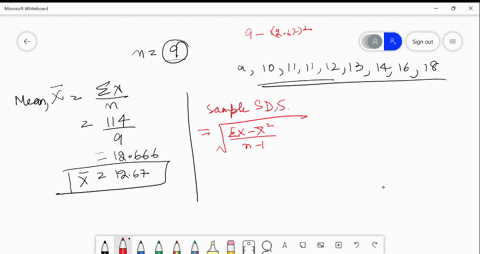 Microsoft Whiteboard
Sign out
n = 9
9 - (12.67)²
9, 10, 11, 11, 12, 13, 14, 16, 18
Mean, X̄ = Σx
n
= 114
9
= 12.666
X̄ = 12.67
Sample S.D.S.
= √ Σx - x̄²
n-1